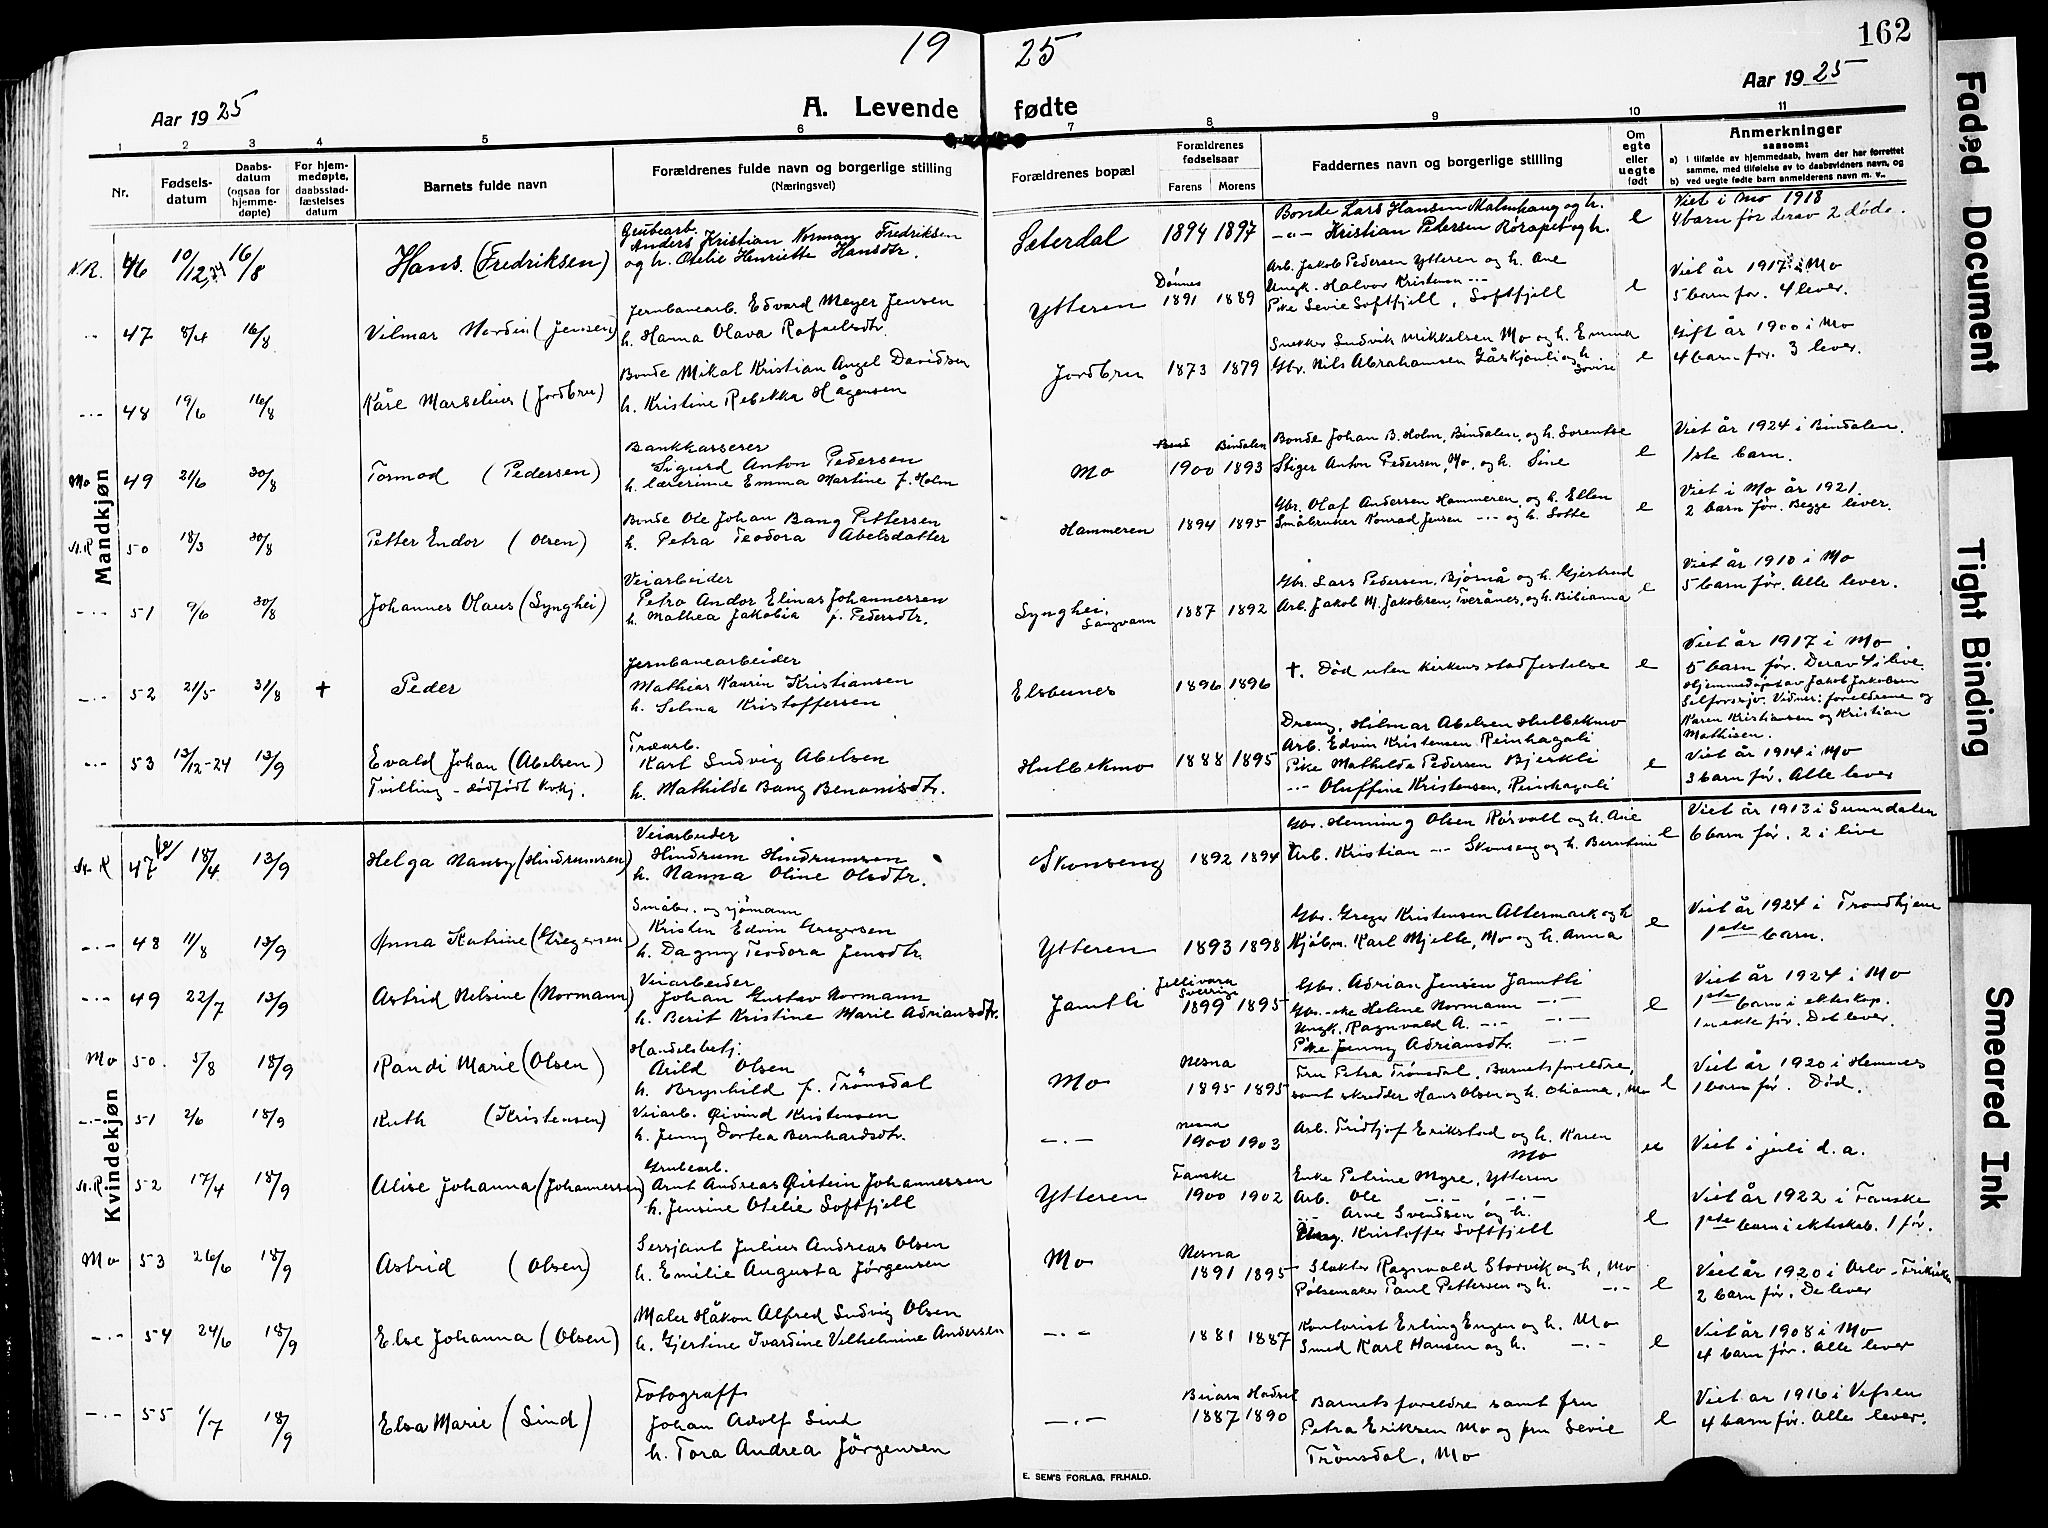 19 25
162
Aar 1925
A. Levende fødte
Aar 1925
1 2 3 4 5 6 7 8 9 10 11
Nr.
Fødsels-
datum
Daabs-
datum
(ogsaa for
hjemme-
døpte)
For hjem-
medøpte,
daabsstad-
fæstelses
datum
Barnets fulde navn
Forældrenes fulde navn og borgerlige stilling
(Næringsvei)
Forældrenes bopæl
Forældrenes
fødselsaar
Farens Morens
Faddernes navn og borgerlige stilling
Om
egte
eller
uegte
født
Anmerkninger
saasom:
a) i tilfælde av hjemmedaab, hvem der har forrettet
samme, med tilføielse av to daabsvidners navn, og
b) ved uegte fødte barn anmelderens navn m. v..
Mandkjøn
N.R. 46 10/12,24 16/8 Hans (Fredriksen)
Grubearb.
Anders Kristian Norman Fredriksen
og h. Otelie Henriette Hansdtr.
Seterdal 1894 1897
Bonde Lars Hansen Malmhaug og h.
-"- Kristian Petersen Rørapet og h.
e
Viet i Mo 1918
4 barn før derav 2 døde.
-"- 47 8/4 16/8 Vilmar Nordin (Jensen)
Jernbanearb. Edvard Meyer Jensen
h. Hanna Olava Rafaelsdtr.
Ytteren Dønnes 1891 1889
Arb. Jakob Pedersen Ytteren og h. Ane
Ungk. Halvor Kristensen -"-
Pike Sevie Softfjell, Softfjell
e
Viet år 1917 i Mo
5 barn før. 4 lever.
-"- 48 19/6 16/8 Kåre Marselius (Jordbru)
Bonde Mikal Kristian Angel Davidsen
h. Kristine Rebekka Hågensen
Jordbru 1873 1879
Snekker Ludvik Mikkelsen Mo og h. Emma
Gbr. Nils Abrahamsen Gåskjønli og h.
Lovise
e
Gift år 1900 i Mo
4 barn før. 3 lever.
Mo 49 21/6 30/8 Tormod (Pedersen)
Bankkasserer
Sigurd Anton Pedersen
h. lærerinne Emma Martine f. Holm
Mo Bindalen 1900 1893
Bonde Johan B. Holm, Bindalen, og h. Lorentse
Stiger Anton Pedersen, Mo, og h. Sine
e
Viet år 1924 i Bindalen.
1ste barn.
N.R 50 18/3 30/8 Petter Endor (Olsen)
Bonde Ole Johan Bang Pettersen
h. Petra Teodora Abelsdatter
Hammeren 1894 1895
Gbr. Olaf Andersen Hammeren, og h. Ellen
Småbruker Konrad Jensen -"- og h. Lotte
e
Viet i Mo år 1921.
2 barn før. Begge lever.
-"- 51 9/6 30/8 Johannes Olaus (Synghei)
Veiarbeider
Petro Andor Elinas Johannessen
h. Mathea Jakobia f. Pedersdtr.
Synghei,
Langvann
1887 1892
Gbr. Lars Pedersen, Bjørnå og h. Gjertrud
Arb. Jakob M. Jakobsen, Tverånes, og h. Bibianna
e
Viet år 1910 i Mo
5 barn før. Alle lever.
-"- 52 21/5 31/8 + Peder
Jernbanearbeider
Mathias Kaurin Kristiansen
h. Selma Kristoffersen
Elsbunes 1896 1896
+. Død uten kirkens stadfestelse
e
Viet år 1917 i Mo
5 barn før. Derav 4 i live.
Hjemmedøpt av Jakob Jakobsen
Selforssjv. Vidner: foreldrene og
Karen Kristiansen og Kristian
Mathisen.
-"- 53 13/12-24 13/9 Evald Johan (Abelsen)
Tvilling - dødfødt kvkj.
Træarb.
Karl Ludvig Abelsen
h. Mathilde Bang Benonisdtr.
Hulbekmo 1888 1895
Dreng. Hilmar Abelsen Hulbekmo
Arb. Edvin Kristensen Reinhagali
Pike Mathilde Pedersen Bjerkli
-"- Oluffine Kristensen, Reinhagali
e
Viet år 1914 i Mo
3 barn før. Alle lever
Kvindekjøn
N. R 47 18/4 13/9 Helga Nansy (Hindrumsen)
Veiarbeider
Hindrum Hindrumsen
h. Nanna Oline Olsdtr.
Skonseng 1892 1894
Gbr. Henning Olsen Røsvoll og h. Ane
Arb. Kristian -"- Skonseng og h. Berntine
e
Viet år 1913 i Sunndalen
6 barn før. 2 i live
-"- 48 11/8 13/9 Anna Katrine (Gregersen)
Småbr. og sjømann
Kristen Edvin Gregersen
h. Dagny Teodora Jensdtr.
Ytteren 1893 1898
Gbr. Greger Kristensen Altermark og h
Kjøbm. Karl Mjelle, Mo og h. Anna
e
Viet år 1924 i Trondhjem
1ste barn.
-"- 49 22/7 13/9 Astrid Nelsine (Normann)
Veiarbeider
Johan Gustav Normann
h. Berit Kristine Marie Adriansdtr.
Jamtli Jellivara
Sverrige
1899 1895
Gbr. Adrian Jensen Jamtli
Gbr.-ske Helene Normann -"-
Ungk. Ragnvald A. -"- -"-
Pike Jenny Adriansdtr. -"-
e
Viet år 1924 i Mo
1ste barn i ekteskap.
1 uekte før. Det lever.
Mo 50. 5/8 18/9 Randi Marie (Olsen)
Handelsbetj.
Arild Olsen
h. Brynhild f. Trønsdal
Mo Nesna 1895 1895
Fru Petra Trønsdal, Barnets foreldre,
samt skredder Hans Olsen og h. Okianna, Mo
e
Viet år 1920 i Hemnes
1 barn før. Død.
-"- 51 2/6 18/9 Ruth (Kristensen)
Veiarb. Øivind Kristensen
h. Jenny Dortea Bernhardsdtr.
-"- Nesna 1900 1903
Arb. Fridtjof Erikstad og h. Karen
Mo
u
Viet i juli d. a.
N.R 52 17/4 18/9 Alise Johanna (Johannessen)
Grubearb.
Arnt Andreas Øistein Johannessen
h. Jensine Otelie Softfjell
Ytteren Fauske 1900 1902
Enke Petrine Myre, Ytteren
Arb. Ole -"-, -"-
Arne Svendsen og h.
Ung. Kristoffer Softfjell
e
Viet år 1922 i Fauske
1ste barn i ekteskab. 1 før.
Mo 53 26/6 18/9 Astrid (Olsen)
Sersjant Julius Andreas Olsen
h. Emilie Augusta Jørgensen
Mo Nesna 1891 1895
Slakter Ragnvald Storvik og h, Mo
Pølsemaker Paul Pettersen og h. -"-
e
Viet år 1920 i Oslo - Frikirken
2 barn før. De lever
-"- 54 24/6 18/9 Else Johanna (Olsen)
Maler Håkon Alfred Ludvig Olsen
h. Gjertine Ivardine Vilhelmine Andersen
-"- 1881 1887
Kontorist Erling Engen og h. Mo
Smed Karl Hansen og h. -"-
e
Viet år 1908 i Mo
4 barn før. Alle lever
-"- 55 1/7 18/9 Elsa Marie (Lind)
Fotograff
Johan Adolf Lind
h. Tora Andrea Jørgensen
-"- Beiarn Hadsel
1887 1890
Barnets foreldre samt fru
Petra Eriksen Mo og fru Sevie
Trønsdal, Mo
e
Viet år 1916 i Vefsen
4 barn før. Alle lever.
E. SEM'S FORLAG, FR.HALD.
Faded Document
Tight Binding
Smeared Ink